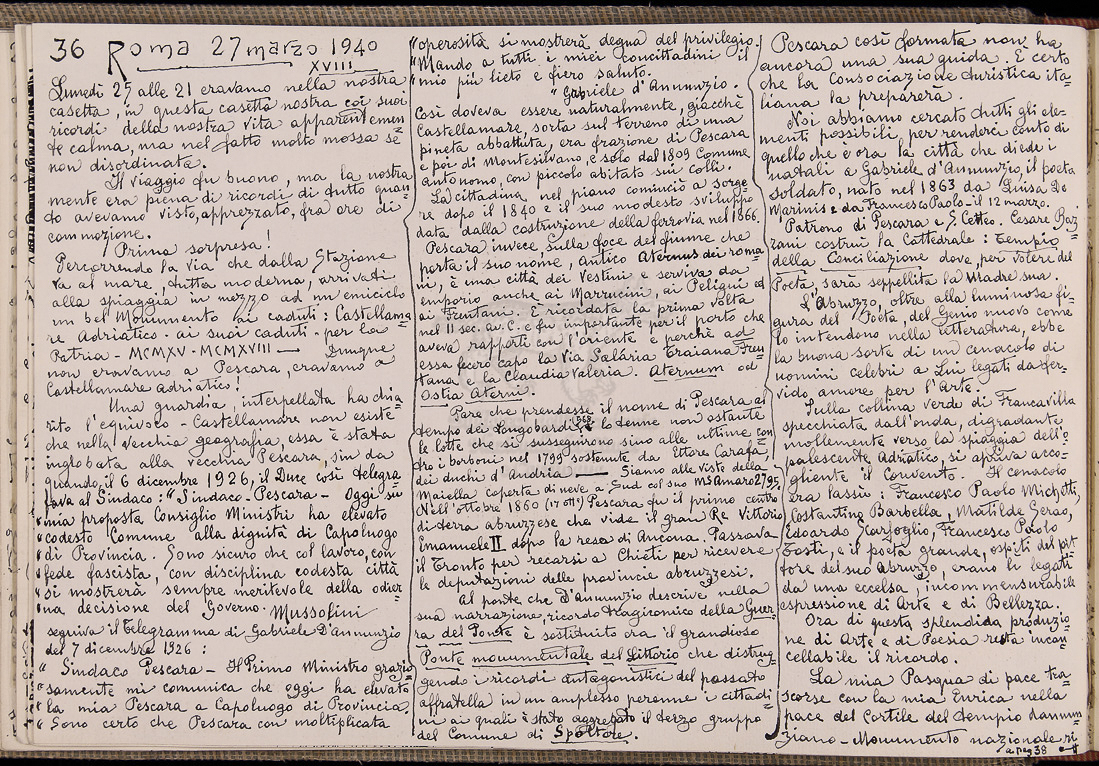 36 Roma 27 marzo 1940
XVIII
Lunedì 25 alle 21 eravamo nella nostra
casetta, in questa casetta nostra coi suoi
ricordi della nostra vita apparentemen=
te calma, ma nel fatto molto mossa se
non disordinata.
Il viaggio fu buono, ma la nostra
mente era piena di ricordi di tutto quan=
to avevamo visto, apprezzato, fra ore di
commozione.
Prima sorpresa!
Percorrendo la via che dalla Stazione
va al mare, tutta moderna, arrivati
alla spiaggia in mezzo ad un emiciclo
un bel Monumento ai caduti: Castellama=
re Adriatico - ai suoi caduti - per la
Patria - MCMXV - MCMXVIII — Dunque
non eravamo a Pescara, eravamo a
Castellamare Adriatico!
Una guardia, interpellata ha chia=
rito l'equivoco - Castellamare non esiste
che nella vecchia geografia, essa è stata
inglobata alla vecchia Pescara, sin da
quando, il 6 dicembre 1926, il Duce così telegra
fava al Sindaco: "Sindaco - Pescara - Oggi su
"mia proposta Consiglio Ministri ha elevato
"codesto Comune alla dignità di Capoluogo
"di Provincia. Sono sicuro che col lavoro, con
"fede fascista, con disciplina codesta città
"si mostrerà sempre meritevole della odier=
"na decisione del Governo. Mussolini
seguiva il telegramma di Gabriele D'annunzio
del 7 dicembre 1926:
"Sindaco Pescara - Il Primo Ministro grazio
"samente mi comunica che oggi ha elevato
"la mia Pescara a Capoluogo di Provincia.
"Sono certo che Pescara con moltiplicata
"operosità si mostrerà degna del privilegio.
"Mando a tutti i miei concittadini il
"mio più lieto e fiero saluto.
"Gabriele d'Annunzio.
Così doveva essere naturalmente, giacchè
Castellamare, sorta sul terreno di una
pineta abbattuta, era frazione di Pescara
e poi di Montesilvano, e solo dal 1809 Comune
autonomo, con piccolo abitato sui colli.
La cittadina, nel piano cominciò a sorge=
re dopo il 1840 e il suo modesto sviluppo
data dalla costruzione della ferrovia nel 1866.
Pescara invece sulla foce del fiume che
porta il suo nome, antico Aternus dei roma
ni, è una città dei Vestini e serviva da
emporio anche ai Marrucini, ai Peligni ed
ai Frentani. È ricordata la prima volta
nel II sec. av. C. e fu importante per il porto che
aveva rapporti con l'oriente e perchè ad
essa fecero capo la Via Salaria Traiana Fren
tana e la Claudia Valeria. Aternum od
Ostia Aterni.
Pare che prendesse il nome di Pescara al
tempo dei Longobardi e lo tenne non ostante
le lotte che si susseguirono sino alle ultime con
tro i borboni nel 1799 sostenute da Ettore Carafa,
dei duchi d'Andria — Siamo alle viste della
Maiella coperta di neve a Sud col suo M. Amaro 2795.
Nell'ottobre 1860 (17 ott.) Pescara fu il primo centro
di terra abruzzese che vide il gran Re Vittorio
Emanuele II dopo la resa di Ancona. Passava
il Tronto per recarsi a Chieti per ricevere
le deputazioni delle provincie abruzzesi.
Al ponte che D'annunzio descrive nella
sua narrazione, ricordo tragironico della Guer
ra del Ponte è sostituito ora il grandioso
Ponte monumentale del Littorio che distrug=
gendo i ricordi antagonistici del passato
affratella in un amplesso perenne i cittadi
ni ai quali è stato aggregato il terzo gruppo
del Comune di Spoltore.
Pescara così formata non ha
ancora una sua guida. È certo
che la Consociazione turistica ita=
liana la preparerà.
Noi abbiamo cercato tutti gli ele=
menti possibili, per renderci conto di
quello che è ora la città che diede i
natali a Gabriele d'Annunzio, il poeta
soldato, nato nel 1863 da Luisa De
Marinis e da Francesco Paolo - il 12 marzo.
Patrono di Pescara e S. Cetteo. Cesare Baz=
zani costruì la Cattedrale: Tempio
della Conciliazione dove, per volere del
Poeta, sarà seppellita la Madre sua.
L'Abruzzo, oltre alla luminosa fi=
gura del Poeta, del Genio nuovo come
lo intendono nella letteratura, ebbe
la buona sorte di un cenacolo di
uomini celebri a Lui legati da fer=
vido amore per l'Arte.
Sulla collina verde di Francavilla
specchiata dall'onda, digradante
mollemente verso la spiaggia dell'o=
palescente Adriatico, si apriva acco=
gliente il Convento. Il cenacolo
era lassù: Francesco Paolo Michetti,
Costantino Barbella, Matilde Serao,
Edoardo Scarfoglio, Francesco Paolo
Tosti, e il poeta grande, ospiti del pit
tore del suo Abruzzo, erano lì legati
da una eccelsa, incommensurabile
espressione di Arte e di Bellezza.
Ora di questa splendida produzio=
ne di Arte e di Poesia resta incan
cellabile il ricordo.
La mia Pasqua di pace tra=
scorse con la mia Enrica nella
pace del Cortile del tempio dannun
ziano - Monumento nazionale ri
a pag 38